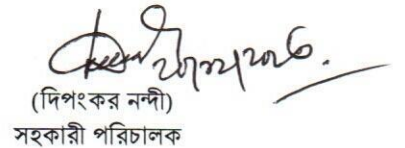 (দিপংকর নন্দী)
সহকারী পরিচালক